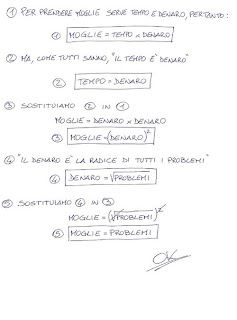 ① PER PRENDERE MOGLIE SERVE TEMPO E DENARO, PERTANTO:
① MOGLIE = TEMPO x DENARO
② MA, COME TUTTI SANNO, "IL TEMPO E' DENARO"
② TEMPO = DENARO
③ SOSTITUIAMO ② IN ①
MOGLIE = DENARO x DENARO
③ MOGLIE = (DENARO)²
④ "IL DENARO E' LA RADICE DI TUTTI I PROBLEMI"
④ DENARO = √PROBLEMI
⑤ SOSTITUIAMO ④ IN ③
MOGLIE = (√PROBLEMI)²
⑤ MOGLIE = PROBLEMI
OK